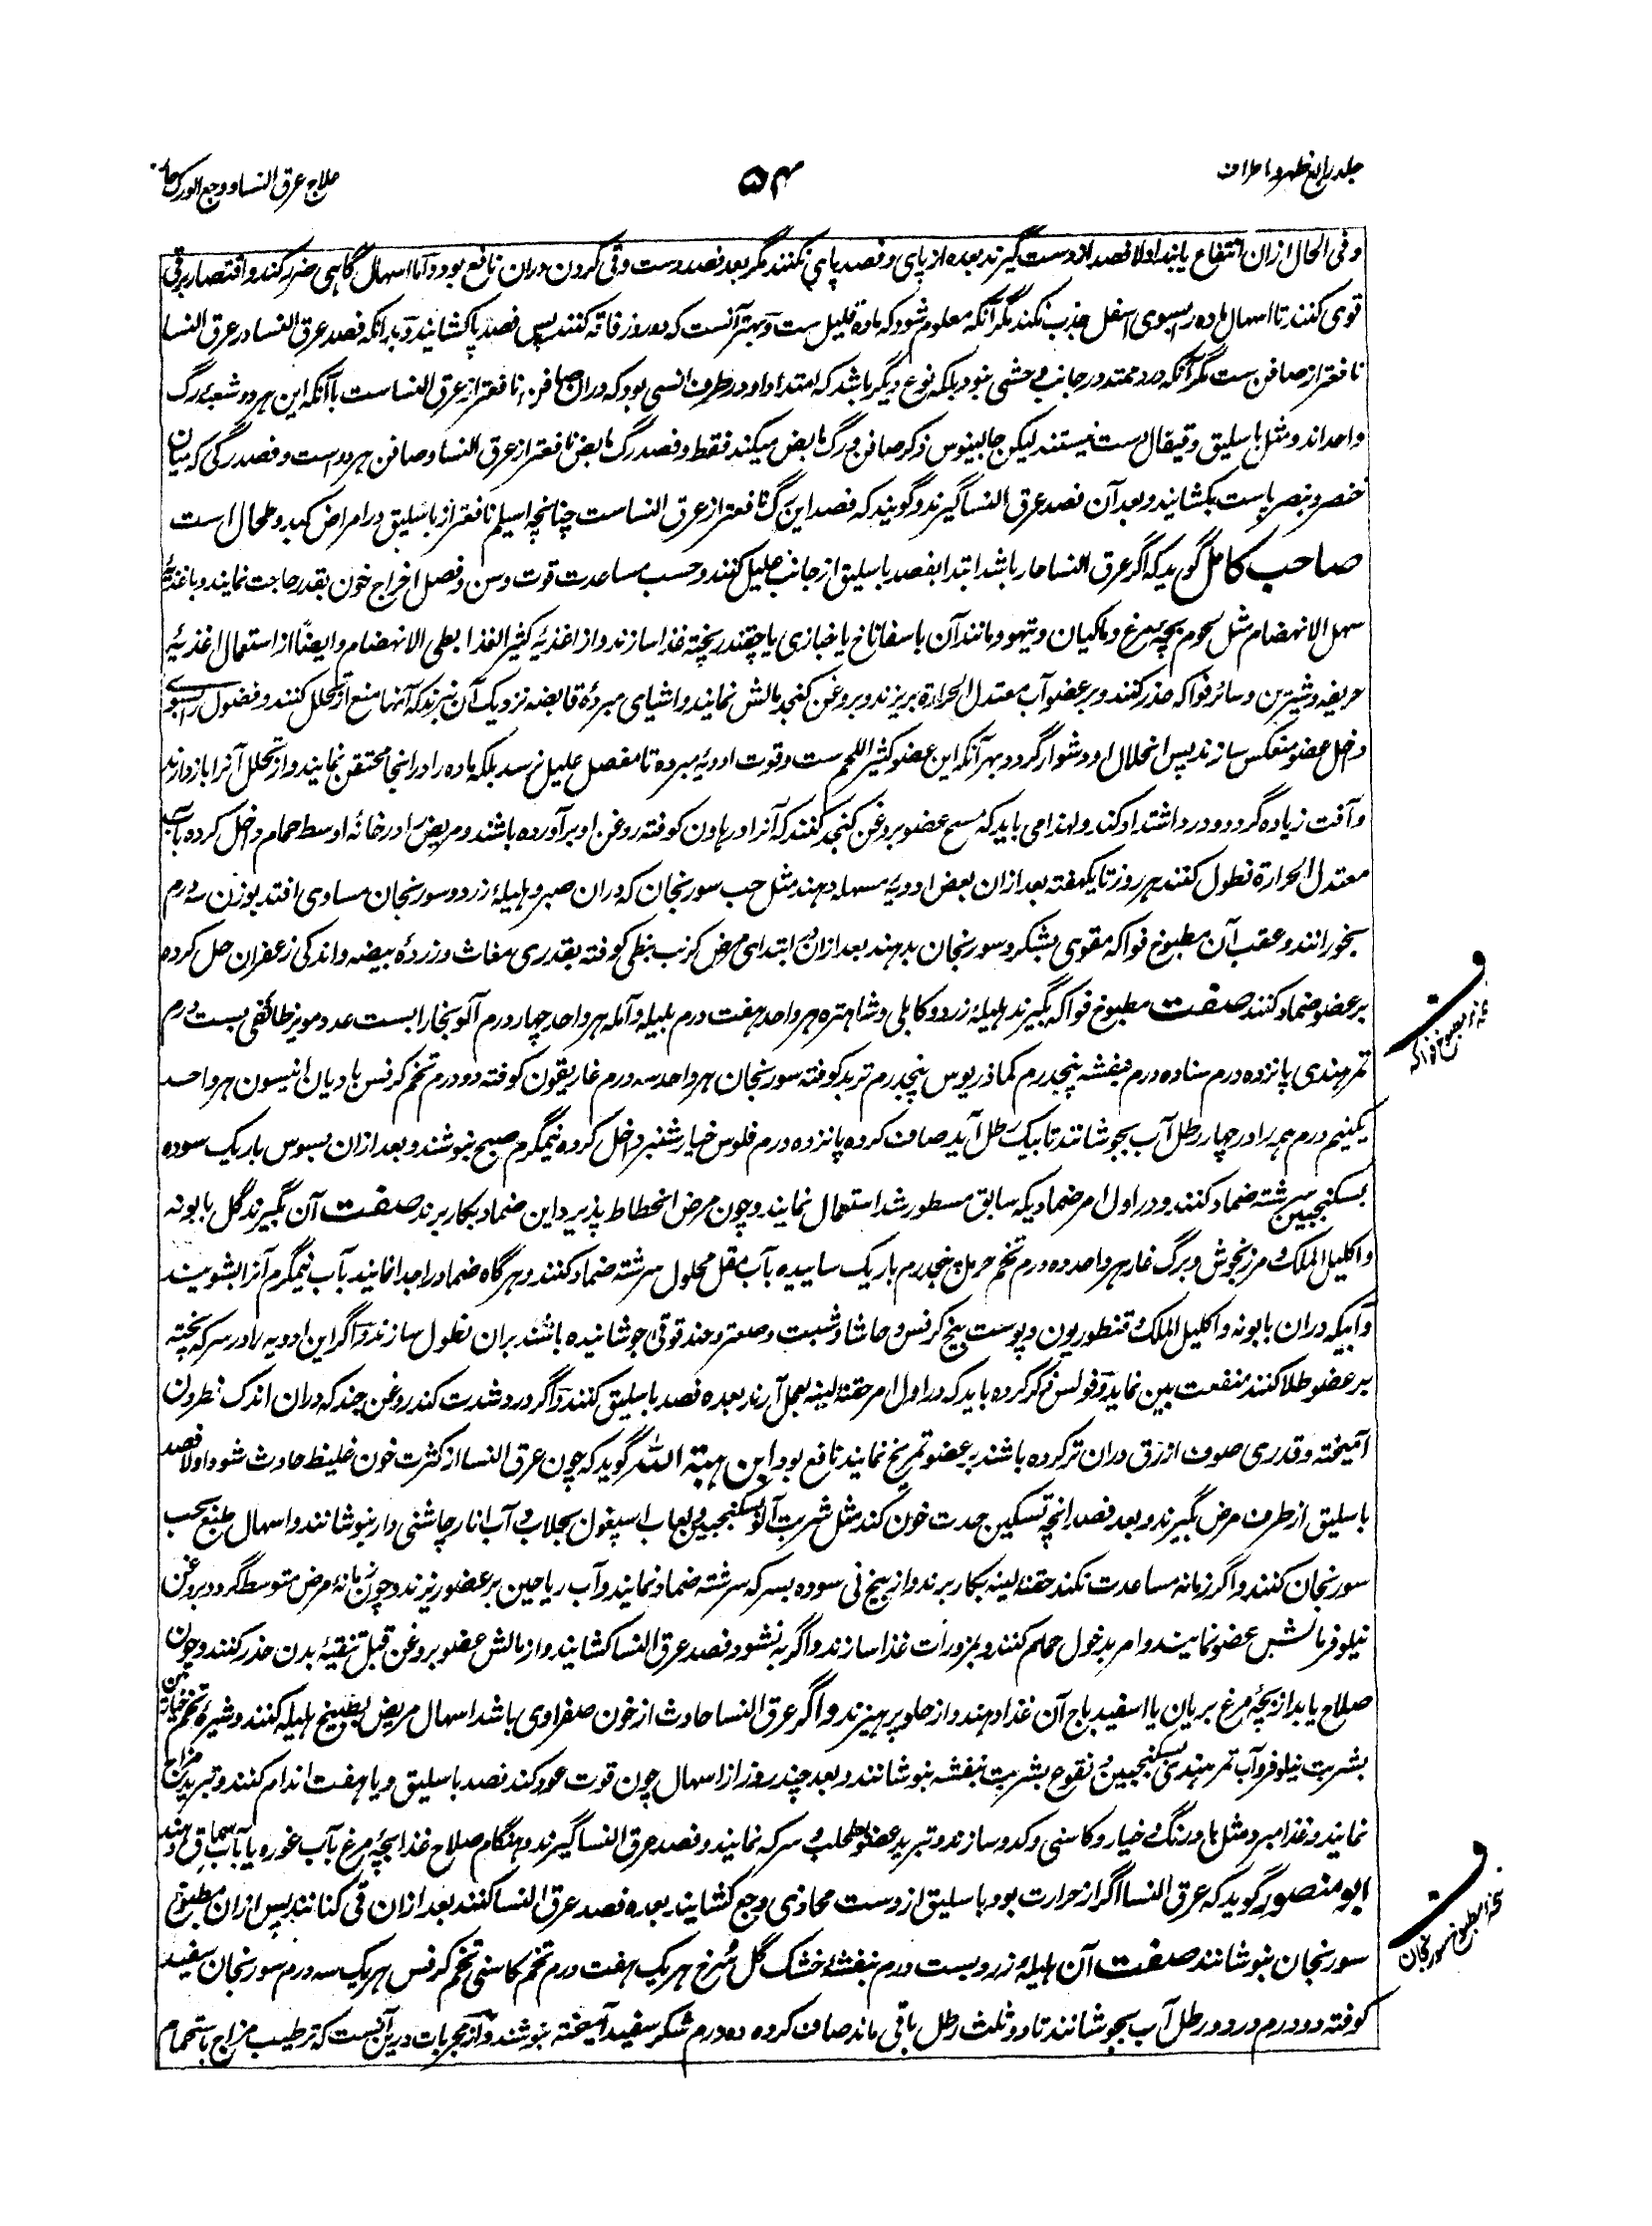 جلد رابع ظهر و اطراف
۵۴
علاج عرق النسا و وجع الورک حار
و فی الحال ازان انتفاع یابند اولا فصد از دست گیرند بعده از پای و فصد پای نکنند مگر بعد فصد دست و قی کردن دران نافع بود و اما اسهال گاهی ضرر کند و اقتصار بر قی
قوی کنند تا اسهال ماده را بسوی اسفل جذب نکند مگر آنکه معلوم شود که ماده قلیل ست و بهتر آنست که دو روز فاقه کنند پس فصد پا کشایند و بدانکه فصد عرق النسا در عرق النسا
نافعتر از صافن ست مگر آنکه درد ممتد در جانب وحشی نبود بلکه نوع دیگر باشد که امتداد او در طرف انسی بود که دران صافن نافعتر از عرق النسا ست با آنکه این هر دو شعبه رگ
واحد اند و مثل باسلیق و قیفال دست نیستند لیکن جالینوس ذکر صافن و رگ مابض میکند فقط و فصد رگ مابض نافعتر از عرق النسا و صافن هر دو است و فصد رگی که میان
خنصر و بنصر پاست بکشایند و بعد آن فصد عرق النسا گیرند و گویند که فصد این رگ نافعتر از عرق النسا ست چنانچه اسیلم نافعتر از باسلیق در امراض کبد و طحال است
صاحب کامل گوید که اگر عرق النسا حار باشد ابتدا بفصد باسلیق از جانب علیل کنند و حسب مساعدت قوت و سن و فصل اخراج خون بقدر حاجت نمایند و باغذیه
سهل الانهضام مثل لحوم بچه مرغ و ماکیان و تیهو و مانند آن باسفاناخ یا خبازی یا چقندر پخته غذا سازند و از اغذیه کثیر الغذا بطی الانهضام و ایضًا از استعمال اغذیهٔ
حریفه و شیرین و سائر فواکه حذر کنند و بر عضو آب معتدل الحرارة بریزند و بروغن کنجد مالش نمایند و اشیای مبردهٔ قابضه نزدیک آن نبرند که آنها منع از تحلل کنند و فضول را بسوی
داخل عضو منعکس سازند پس انحلال او دشوار گردد و بهر آنکه این عضو کثیر اللحم ست و قوت ادویهٔ مبرده تا مفصل علیل نرسد بلکه ماده را در انجا محتقن نمایند و از تحلل آنرا باز دارند
و آفت زیاده گردد و درد اشتداد کند و لهذا می باید که مسح عضو بروغن کنجد کنند که آنرا در هاون کوفته روغن او برآورده باشند و مریض را در خانهٔ اوسط حمام داخل کرده بآب
معتدل الحرارة نطول کنند هر روز تا یکهفته بعد ازان بعض ادویهٔ مسهله دهند مثل حب سورنجان که دران صبر و هلیلهٔ زرد و سورنجان مساوی افتد بوزن سه درم
بخورانند و عقب آن مطبوخ فواکه مقوی بشکر و سورنجان بدهند بعد ازان در ابتدای مرض کرنب نبطی کوفته بقدری مغاث و زردهٔ بیضه و اندکی زعفران حل کرده
بر عضو ضماد کنند صفت مطبوخ فواکه بگیرند هلیلهٔ زرد و کابلی و شاهتره هر واحد هفت درم بلیله و آمله هر واحد چهار درم آلو بخارا بست عدد مویز طائفی بست درم
تمر هندی پانزده درم سنا ده درم بنفشه پنجدرم کماذریوس پنجدرم تربد کوفته سورنجان هر واحد سه درم غاریقون کوفته دو درم تخم کرفس بادیان انیسون هر واحد
یکنیم درم همه را در چهار رطل آب بجوشانند تا بیک رطل آید صاف کرده پانزده درم فلوس خیارشنبر داخل کرده نیمگرم صبح بنوشند و بعد ازان سبوس باریک سوده
بسکنجبین سرشته ضماد کنند و در اول امر ضمادیکه سابق مسطور شد استعمال نمایند و چون مرض انحطاط پذیرد این ضماد بکار برند صفت آن بگیرند گل بابونه
و اکلیل الملک و مرزنجوش و برگ غار هر واحد ده درم تخم حرمل پنجدرم باریک ساییده بآب مقل محلول سرشته ضماد کنند و هرگاه ضماد را جدا نمایند بآب نیمگرم آنرا بشویند
و آبیکه دران بابونه و اکلیل الملک و قنطوریون و پوست بیخ کرفس و حاشا و شبت و صعتر و حندقوقی جوشانیده باشند بران نطول سازند و اگر این ادویه را در سرکه پخته
بر عضو طلا کنند منفعت بین نماید و فولس ذکر کرده باید که در اول امر حقنهٔ لینه بعمل آرند بعده فصد باسلیق کنند و اگر درد شدت کند روغن جند که دران اندک نطرون
آمیخته و قدری صوف ازرق دران تر کرده باشند بر عضو تمریخ نمایند نافع بود ابن هبة الله گوید که چون عرق النسا از کثرت خون غلیظ حادث شود اولا فصد
باسلیق از طرف مرض بگیرند و بعد فصد انچه تسکین حدت خون کند مثل شربت آلو و سکنجبین و لعاب اسپغول بجلاب و آب انار چاشنی دار بنوشانند و اسهال طبع بحب
سورنجان کنند و اگر زمانه مساعدت نکند حقنهٔ لینه بکار برند و از بیخ نی سوده بسرکه سرشته ضماد نمایند و آب ریاحین بر عضو ریزند و چون زمانهٔ مرض متوسط گردد بروغن
نیلوفر مالش عضو نمایند و امر بدخول حمام کنند و بمزورات غذا سازند و اگر به نشود فصد عرق النسا کشایند و از مالش عضو بروغن قبل تنقیهٔ بدن حذر کنند و چون
صلاح یابد از بچهٔ مرغ بریان یا اسفیدباج آن غذا دهند و از حلو پرهیزند و اگر عرق النسا حادث از خون صفراوی باشد اسهال مریض بطبیخ هلیله کنند و شیره تخم خیارین
بشربت نیلوفر و آب تمر هندی بسکنجبین و نقوع بشربت بنفشه بنوشانند و بعد چند روز از اسهال چون قوت عود کند فصد باسلیق و یا هفت اندام کنند و تبرید مزاج
نمایند و غذا مبرد مثل بادرنگ و خیار و کاسنی و کدو سازند و تبرید عضو بطحلب و سرکه نمایند و فصد عرق النسا گیرند و هنگام صلاح غذا بچهٔ مرغ بآب غوره یا بآب سماق دهند
ابو منصور گوید که عرق النسا اگر از حرارت بود باسلیق از دست محاذی وجع کشایند بعده فصد عرق النسا کنند بعد ازان قی کنانند پس ازان مطبوخ
سورنجان بنوشانند صفت آن هلیلهٔ زرد بست درم بنفشهٔ خشک گل سرخ هر یک هفت درم تخم کاسنی تخم کرفس هر یک سه درم سورنجان سفید
کوفته دو درم در دو رطل آب بجوشانند تا دو ثلث رطل باقی ماند صاف کرده ده درم شکر سفید آمیخته بنوشند و از مجربات درین آنست که ترطیب مزاج باستحمام
ف
نسخهٔ مطبوخ فواکه
ف
نسخهٔ مطبوخ سورنجان